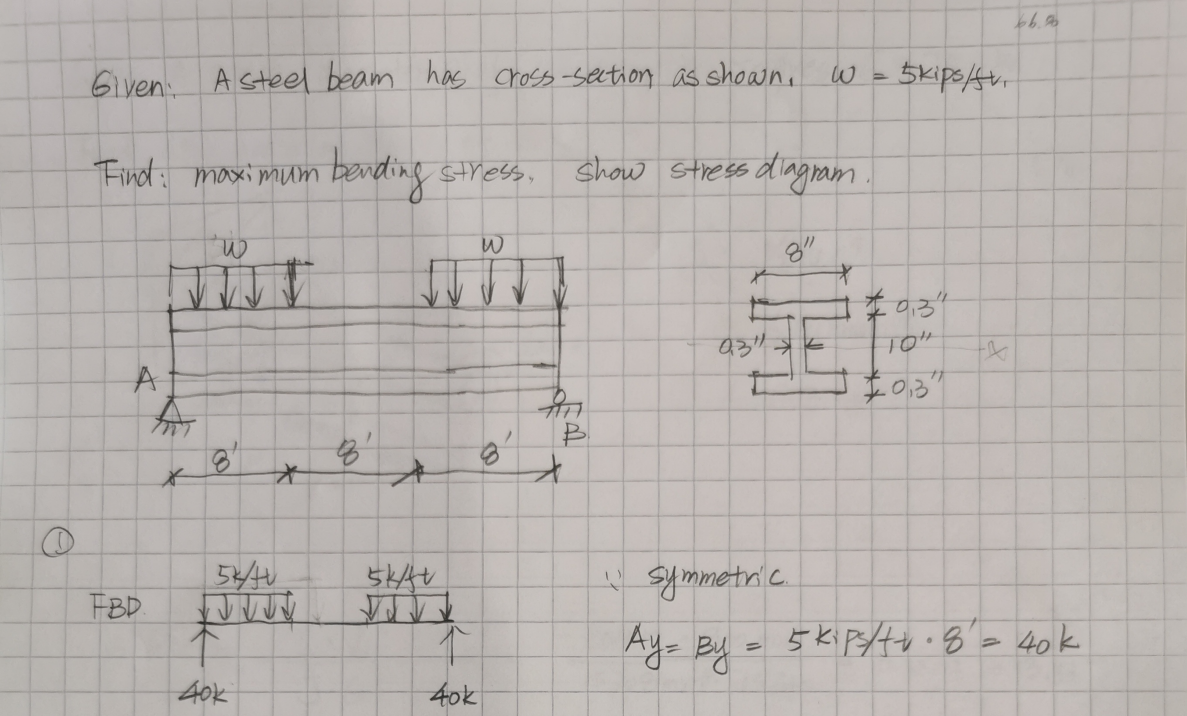 66.8
Given: A steel beam has cross-section as shown. W = 5kips/ft.
Find: maximum bending stress. show stress diagram.
W
W
8"
0.3"
0.3"
10"
0.3"
A
B
8'
8'
8'
①
5k/ft
5k/ft
FBD.
∵ symmetric.
Ay = By = 5 kips/ft · 8' = 40k
40k
40k